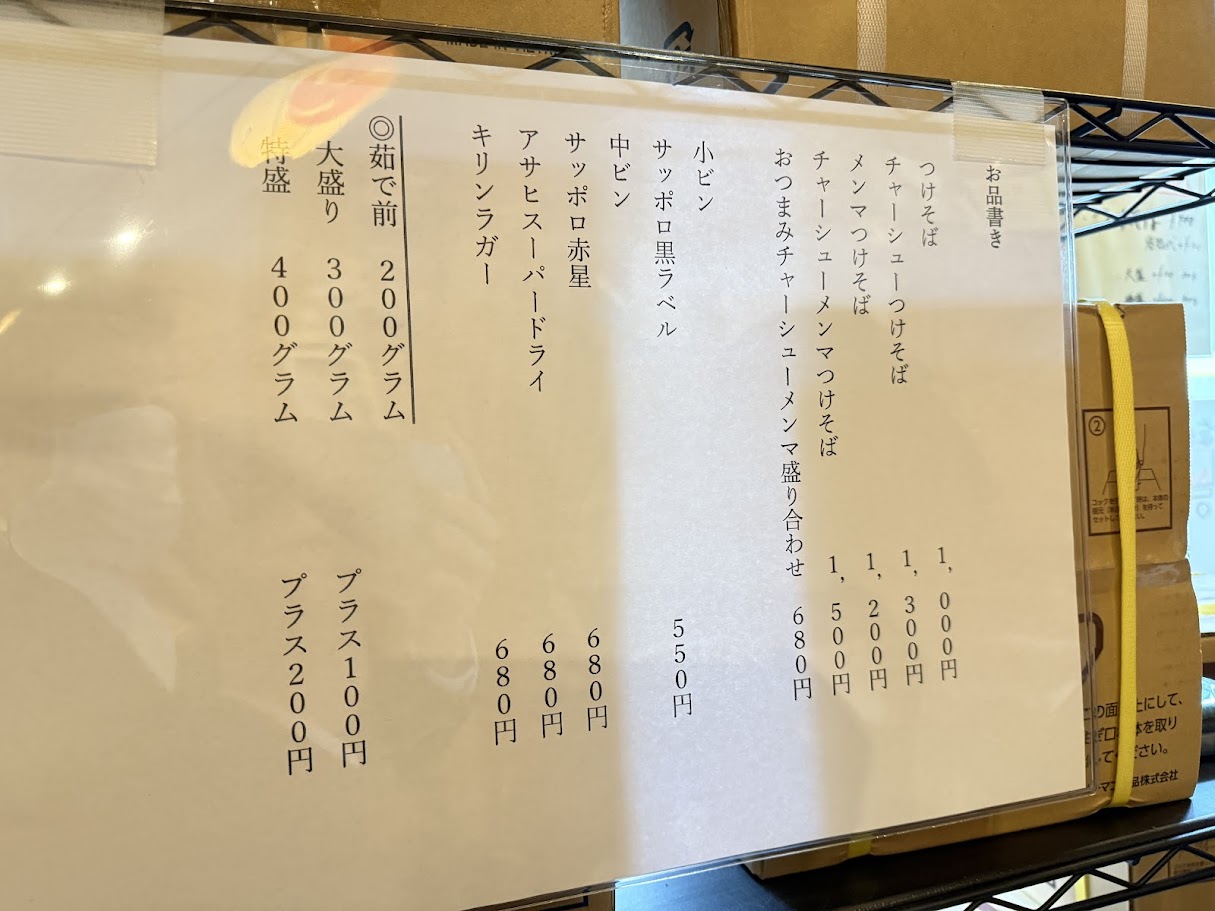 お品書き
つけそば 1,000円
チャーシューつけそば 1,300円
メンマつけそば 1,200円
チャーシューメンマつけそば 1,500円
おつまみチャーシューメンマ盛り合わせ 680円
小ビン
サッポロ黒ラベル 550円
中ビン
サッポロ赤星 680円
アサヒスーパードライ 680円
キリンラガー 680円
◎茹で前 200グラム
大盛り 300グラム プラス100円
特盛 400グラム プラス200円
②